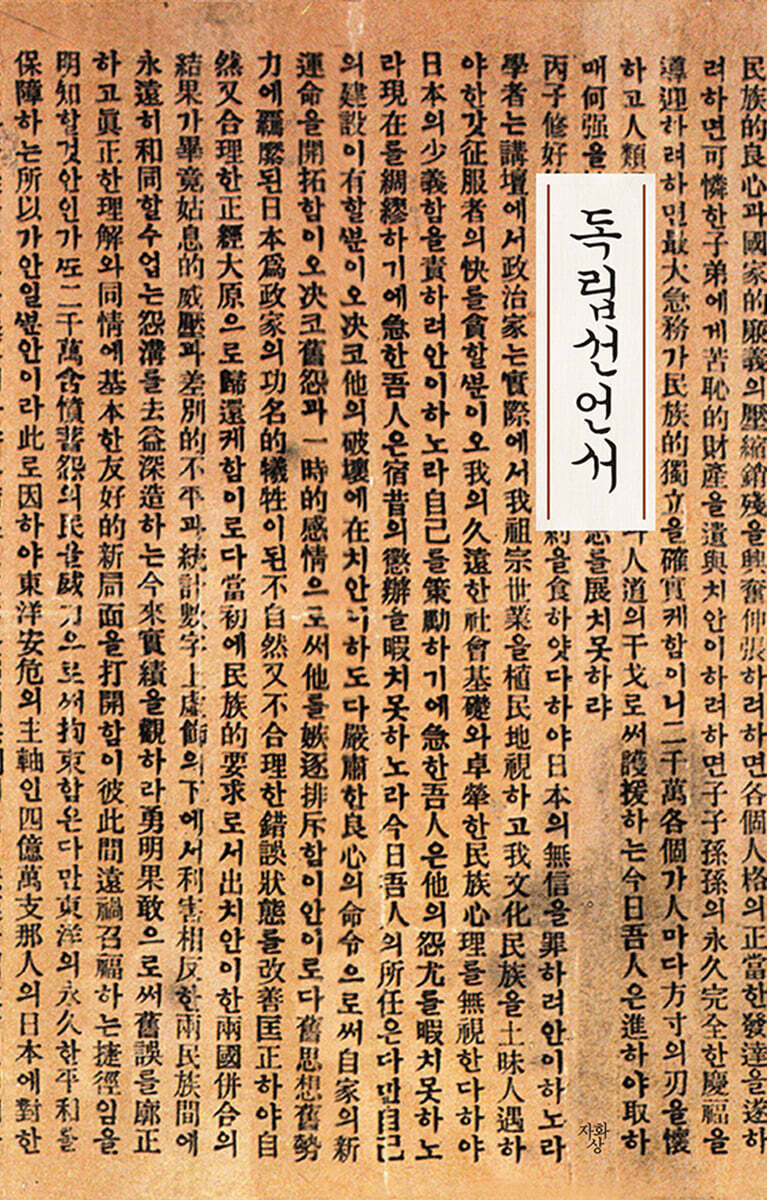 독립선언서
民族的良心과國家的廉義의壓縮銷殘을興奮伸張하려하면各個人格의正當한發達을遂하
려하면可憐한子弟에게苦恥的財產을遺與치안이하려하면子子孫孫의永久完全한慶福을
導迎하려하면最大急務가民族的獨立을確實케함이니二千萬各個가人마다方寸의刃을懷
하고人類 人道의干戈로써護援하는今日吾人은進하야取하
매何强을 를展치못하랴
丙子修好 約을食하얏다하야日本의無信을罪하려안이하노라
學者는講壇에서政治家는實際에서我祖宗世業을植民地視하고我文化民族을土昧人遇하
야한갓征服者의快를貪할ᄲᅮᆫ이오我의久遠한社會基礎와卓犖한民族心理를無視한다하야
日本의少義함을責하려안이하노라自己를策勵하기에急한吾人은他의怨尤를暇치못하노
라現在를綢繆하기에急한吾人은宿昔의懲辦을暇치못하노라今日吾人의所任은다만自己
의建設이有할ᄲᅮᆫ이오決코他의破壞에在치안니하도다嚴肅한良心의命令으로써自家의新
運命을開拓함이오決코舊怨과一時的感情으로써他를嫉逐排斥함이안이로다舊思想舊勢
力에羈縻된日本爲政家의功名的犧牲이된不自然又不合理한錯誤狀態를改善匡正하야自
然又合理한正經大原으로歸還케함이로다當初에民族的要求로서出치안이한兩國併合의
結果가畢竟姑息的威壓과差別的不平과統計數字上虛飾의下에서利害相反한兩民族間에
永遠히和同할수업는怨溝를去益深造하는今來實績을觀하라勇明果敢으로써舊誤를廓正
하고眞正한理解와同情에基本한友好的新局面을打開함이彼此間遠禍召福하는捷徑임을
明知할것안인가ᄯᅩ二千萬含憤蓄怨의民을威力으로써拘束함은다만東洋의永久한平和를
保障하는所以가안일ᄲᅮᆫ안이라此로因하야東洋安危의主軸인四億萬支那人의日本에對한
자화상